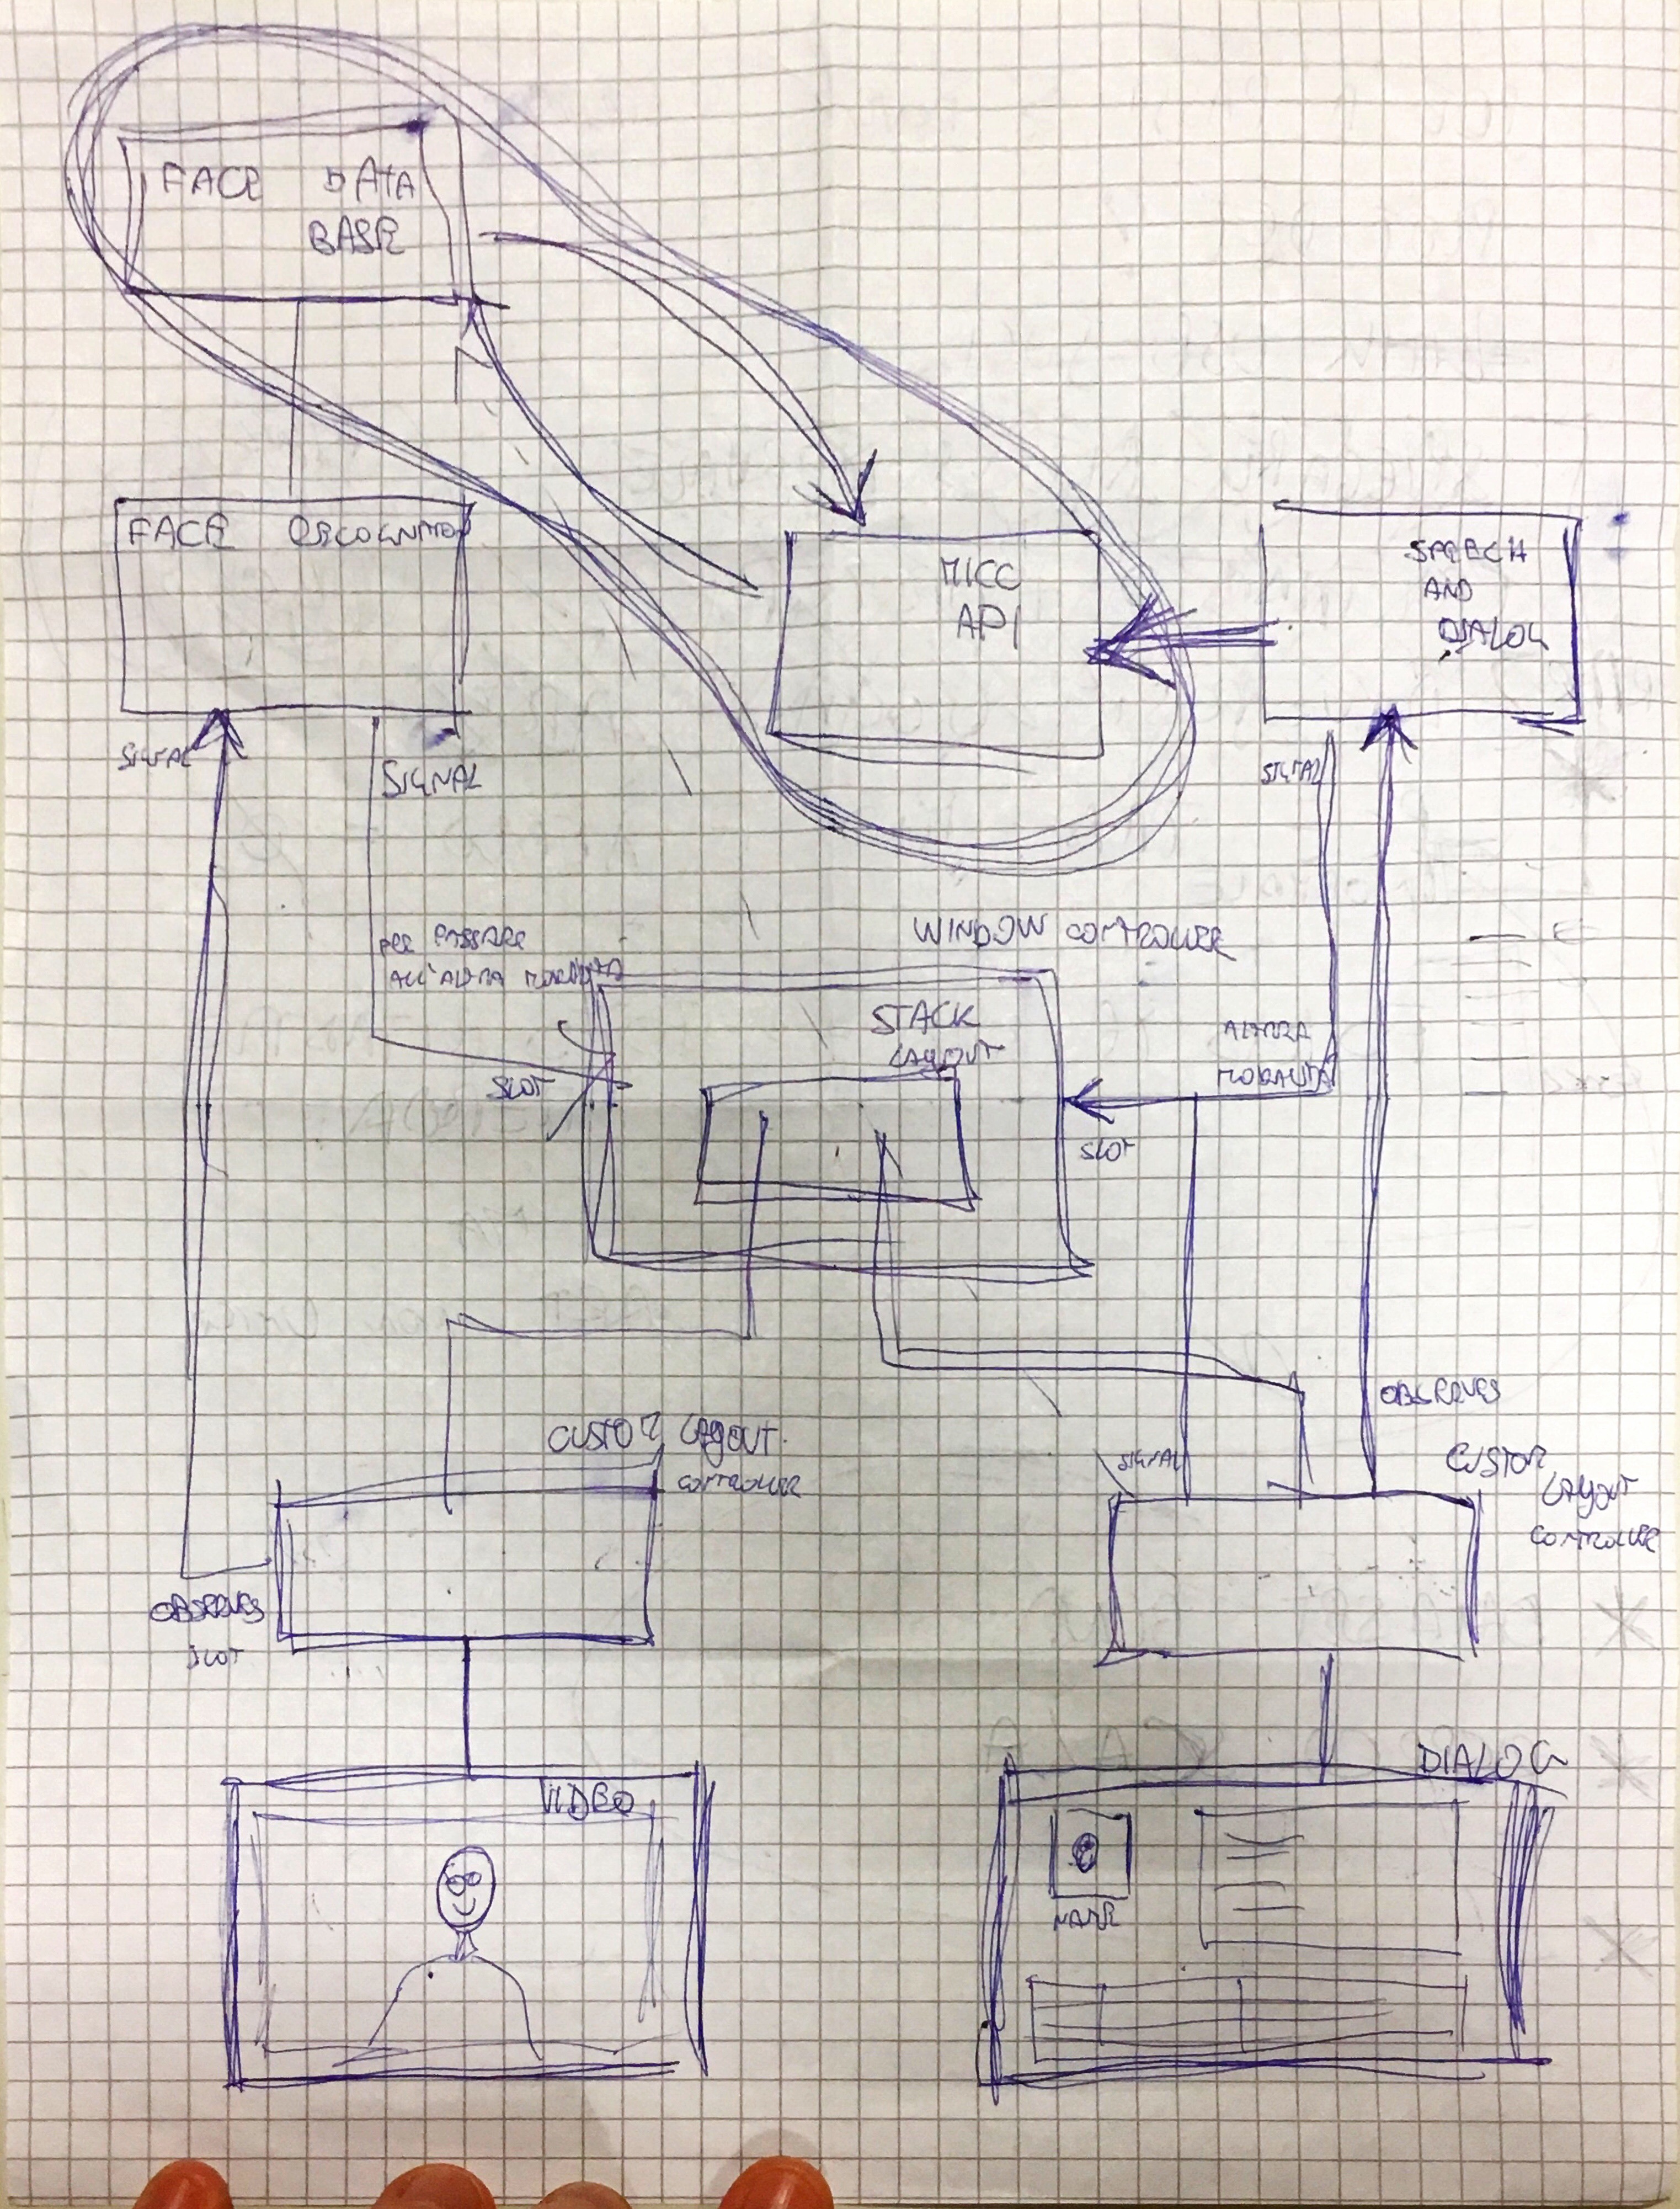 FACE DATA
BASE
FACE RECOGNITION
MICC
API
SPEECH
AND
DIALOG
SIGNAL
SIGNAL
SIGNAL
PER PASSARE
ALL'ALTRA MODALITÀ
WINDOW CONTROLLER
STACK
LAYOUT
SLOT
MODALITÀ
SLOT
OBSERVES
CUSTOM LAYOUT
CONTROLLER
SIGNAL
CUSTOM
LAYOUT
CONTROLLER
OBSERVES
SLOT
VIDEO
DIALOG
NAME